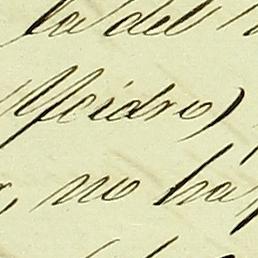 la del
Ysidro)
no ha